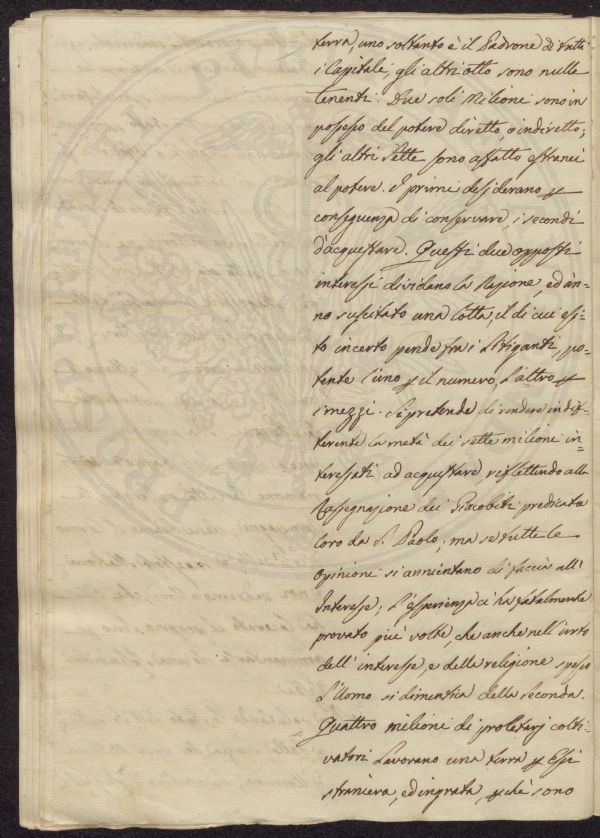 terra, uno soltanto è il Padrone di tutti
i Capitale, gli altri otto sono nulle
tenenti. Due soli Milioni sono in
possesso del potere diretto, o indiretto;
gli altri sette sono affatto estranei
al potere. I primi desiderano p
conseguenza di conservare, i secondi
d'acquestare. Questi due opposti
interessi dividano la Nazione, ed àn=
no suscitato una lotta, il di cui esi=
to incerto pende fra i Litiganti, po=
tente l'uno p il numero, l'altro p
i mezzi. Si pretende di rendere indif=
ferente la metà dei sette milione in=
teressati ad acquestare, riflettendo alla
Rassegnazione dei Giacobiti predicata
loro da S. Paolo; ma se tutte le
opinione si annientano di faccia all'
Interesse; L'esperienza ci ha fatalmente
provato più volte, che anche nell'urto
dell'interesse, e della religione spesso
L'Uomo si dimentica della seconda.
Quattro milioni di proletarj colti=
vatori Lavorano una terra p Essi
straniera, ed ingrata, pchè sono